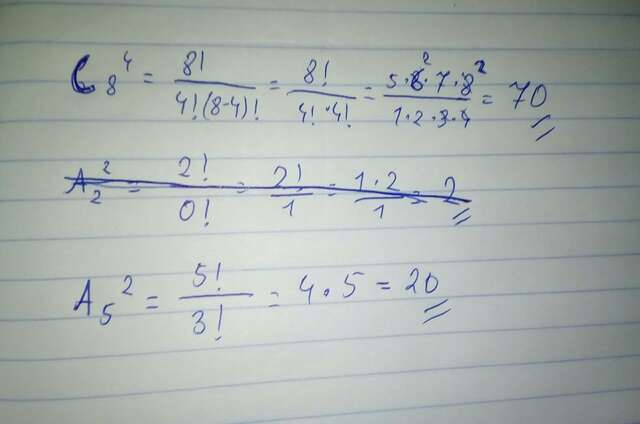 C₈⁴ = 8! / 4!(8-4)! = 8! / 4!·4! = 5·6²·7·8² / 1·2·3·4 = 70
A₂² = 2! / 0! = 2! / 1 = 1·2 / 1 = 2
A₅² = 5! / 3! = 4·5 = 20